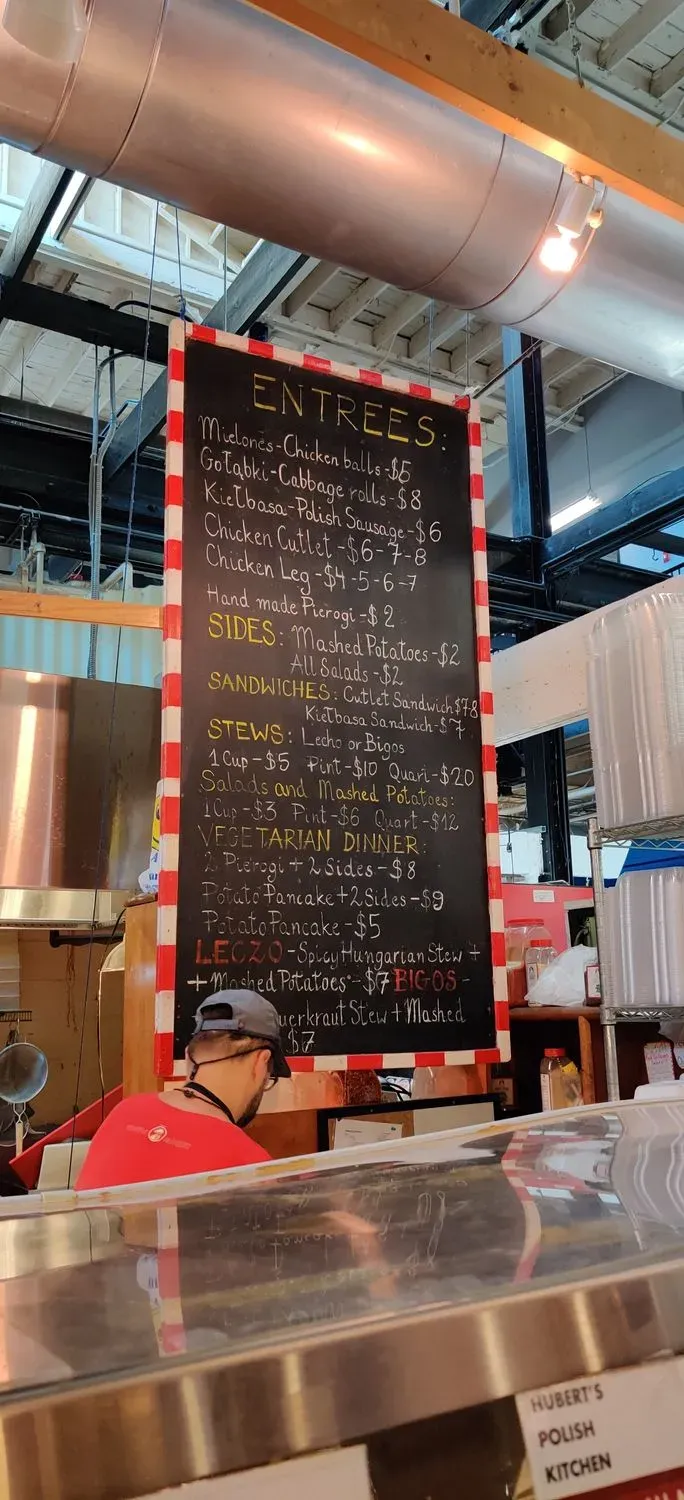 ENTREES:
Mielones-Chicken balls-$5
Gołąbki-Cabbage rolls-$8
Kiełbasa-Polish Sausage-$6
Chicken Cutlet-$6-7-8
Chicken Leg-$4-5-6-7
Hand made Pierogi-$2
SIDES: Mashed Potatoes-$2
All Salads-$2
SANDWICHES: Cutlet Sandwich $7-8
Kiełbasa Sandwich-$7
STEWS: Lecho or Bigos
1Cup-$5 Pint-$10 Quart-$20
Salads and Mashed Potatoes:
1Cup-$3 Pint-$6 Quart-$12
VEGETARIAN DINNER:
2 Pierogi + 2 Sides-$8
Potato Pancake+2 Sides-$9
Potato Pancake-$5
LECZO-Spicy Hungarian Stew +
+ Mashed Potatoes-$7 BIGOS-
Stew + Mashed
$7
HUBERT'S
POLISH
KITCHEN